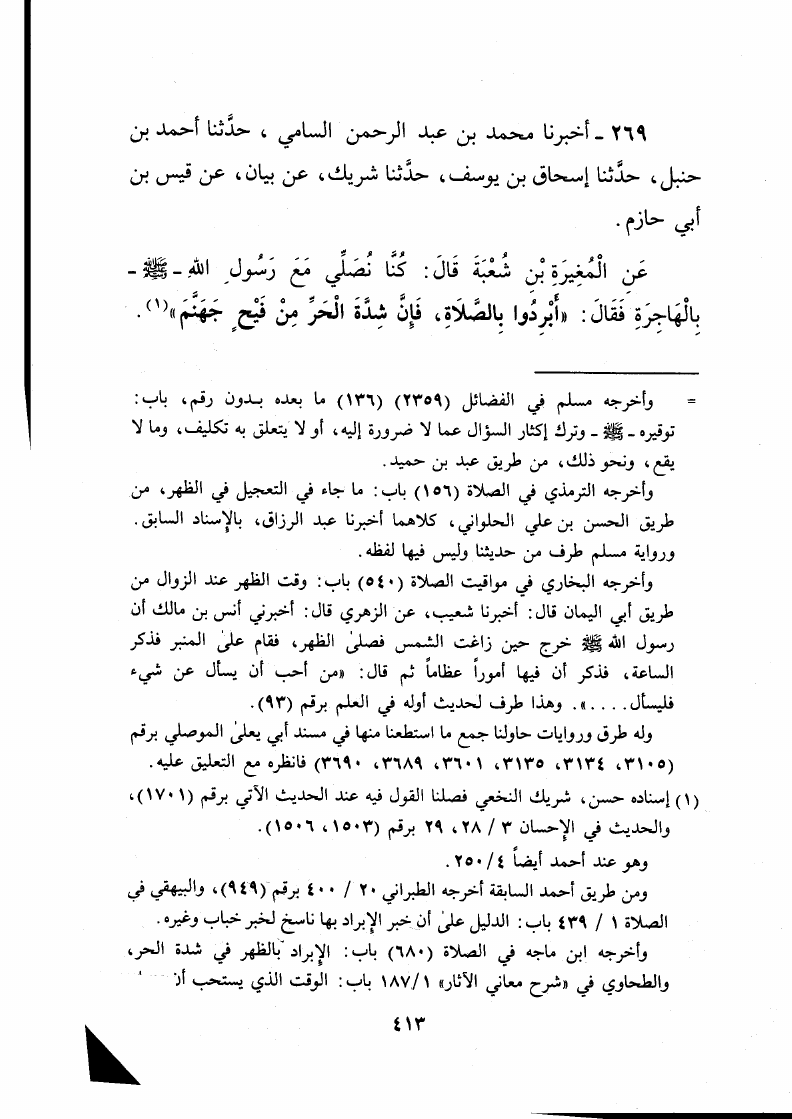 ٢٦٩ ـ أخبرنا محمد بن عبد الرحمن السامي ، حدَّثنا أحمد بن
حنبل، حدَّثنا إسحاق بن يوسف، حدَّثنا شريك، عن بيان، عن قيس بن
أبي حازم .
عَنِ الْمُغِيرَةِ بْنِ شُعْبَةَ قَالَ: كُنَّا نُصَلِّي مَعَ رَسُولِ اللهِ ـ ﷺ ـ
بِالْهَاجِرَةِ فَقَالَ: «أَبْرِدُوا بِالصَّلَاةِ، فَإِنَّ شِدَّةَ الْحَرِّ مِنْ فَيْحِ جَهَنَّمَ»(١).
= وأخرجه مسلم في الفضائل (٢٣٥٩) (١٣٦) ما بعده بدون رقم، باب:
توقيره ـ ﷺ ـ وترك إكثار السؤال عما لا ضرورة إليه، أو لا يتعلق به تكليف، وما لا
يقع، ونحو ذلك، من طريق عبد بن حميد.
وأخرجه الترمذي في الصلاة (١٥٦) باب: ما جاء في التعجيل في الظهر، من
طريق الحسن بن علي الحلواني، كلاهما أخبرنا عبد الرزاق، بالإسناد السابق.
ورواية مسلم طرف من حديثنا وليس فيها لفظه.
وأخرجه البخاري في مواقيت الصلاة (٥٤٠) باب: وقت الظهر عند الزوال من
طريق أبي اليمان قال: أخبرنا شعيب، عن الزهري قال: أخبرني أنس بن مالك أن
رسول الله ﷺ خرج حين زاغت الشمس فصلىٰ الظهر، فقام علىٰ المنبر فذكر
الساعة، فذكر أن فيها أموراً عظاماً ثم قال: «من أحب أن يسأل عن شيء
فليسأل....». وهذا طرف لحديث أوله في العلم برقم (٩٣).
وله طرق وروايات حاولنا جمع ما استطعنا منها في مسند أبي يعلىٰ الموصلي برقم
(٣١٠٥، ٣١٣٤، ٣١٣٥، ٣٦٠١، ٣٦٨٩، ٣٦٩٠) فانظره مع التعليق عليه.
(١) إسناده حسن، شريك النخعي فصلنا القول فيه عند الحديث الآتي برقم (١٧٠١)،
والحديث في الإحسان ٣ / ٢٨، ٢٩ برقم (١٥٠٣، ١٥٠٦).
وهو عند أحمد أيضاً ٤/ ٢٥٠.
ومن طريق أحمد السابقة أخرجه الطبراني ٢٠ / ٤٠٠ برقم (٩٤٩)، والبيهقي في
الصلاة ١ / ٤٣٩ باب: الدليل علىٰ أن خبر الإبراد بها ناسخ لخبر خباب وغيره.
وأخرجه ابن ماجه في الصلاة (٦٨٠) باب: الإبراد بالظهر في شدة الحر،
والطحاوي في «شرح معاني الآثار» ١/ ١٨٧ باب: الوقت الذي يستحب أن
٤١٣